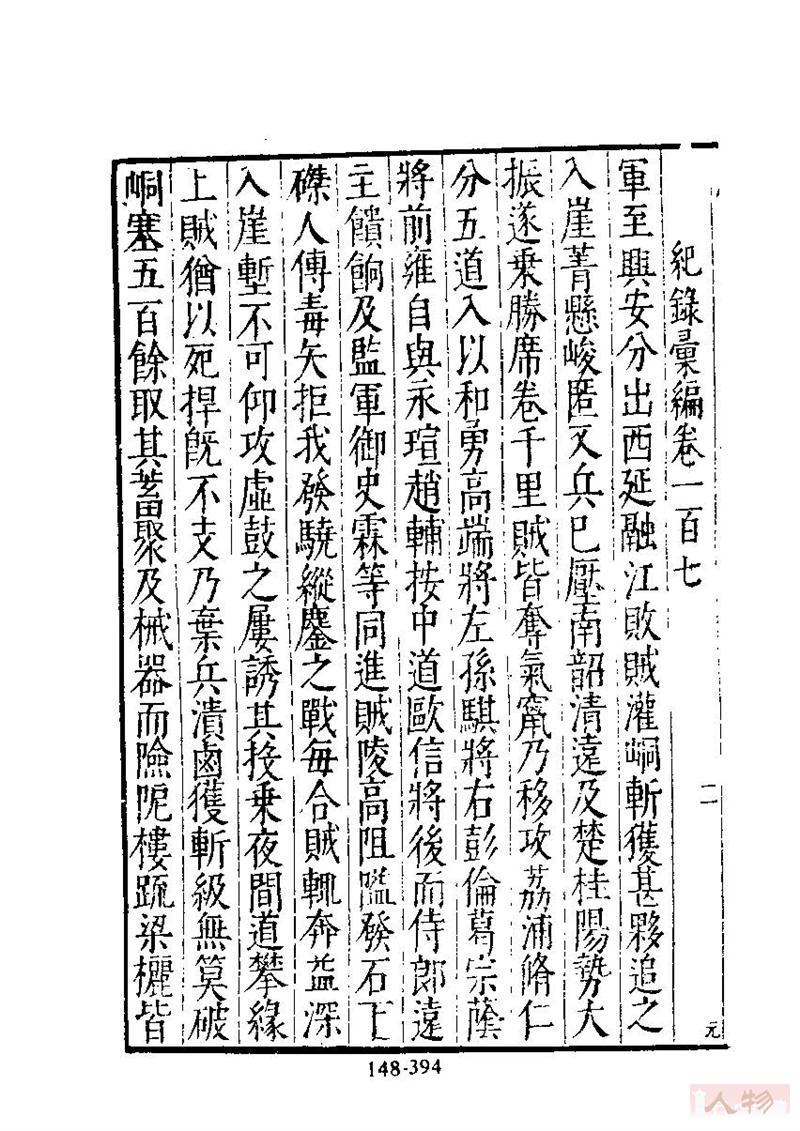 紀錄彙編卷一百七
二
元
軍至興安分出西延融江敗賊灌峒斬獲甚夥追之
入崖菁懸峻匿又兵已壓南韶清遠及楚桂陽勢大
振遂乗勝席卷千里賊皆奪氣竄乃移攻荔浦脩仁
分五道入以和勇高端將左孫騏將右彭倫葛宗蔭
將前雍自與永瑄趙輔按中道歐信將後而侍郎遠
主饋餉及監軍御史霖等同進賊陵高阻隘發石下
磔人傳毒矢拒我發驍縱鏖之戰每合賊輒奔益深
入崖塹不可仰攻虛鼓之屢誘其投乗夜間道攀緣
上賊猶以死捍旣不支乃棄兵潰鹵獲斬級無筭破
峒塞五百餘取其蓄聚及械器而險阨樓䟽梁欐皆
148-394
人物